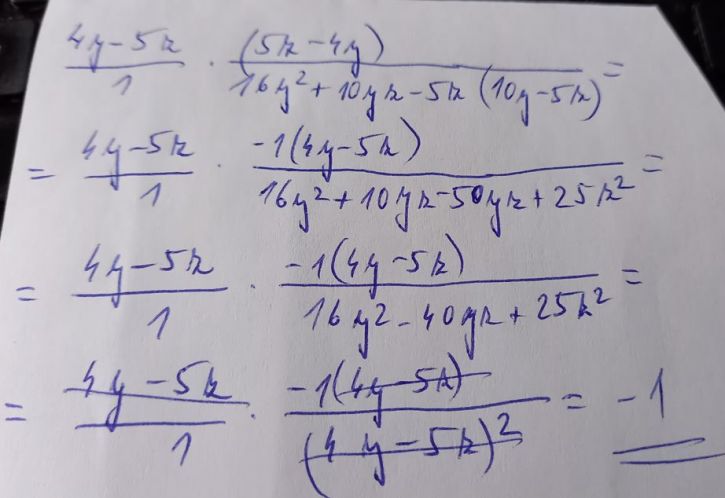 (4y-5z)/1 · (5z-4y)/(16y²+10yz-5z(10y-5z)) =
= (4y-5z)/1 · -1(4y-5z)/(16y²+10yz-50yz+25z²) =
= (4y-5z)/1 · -1(4y-5z)/(16y²-40yz+25z²) =
= (4y-5z)/1 · -1(4y-5z)/(4y-5z)² = -1